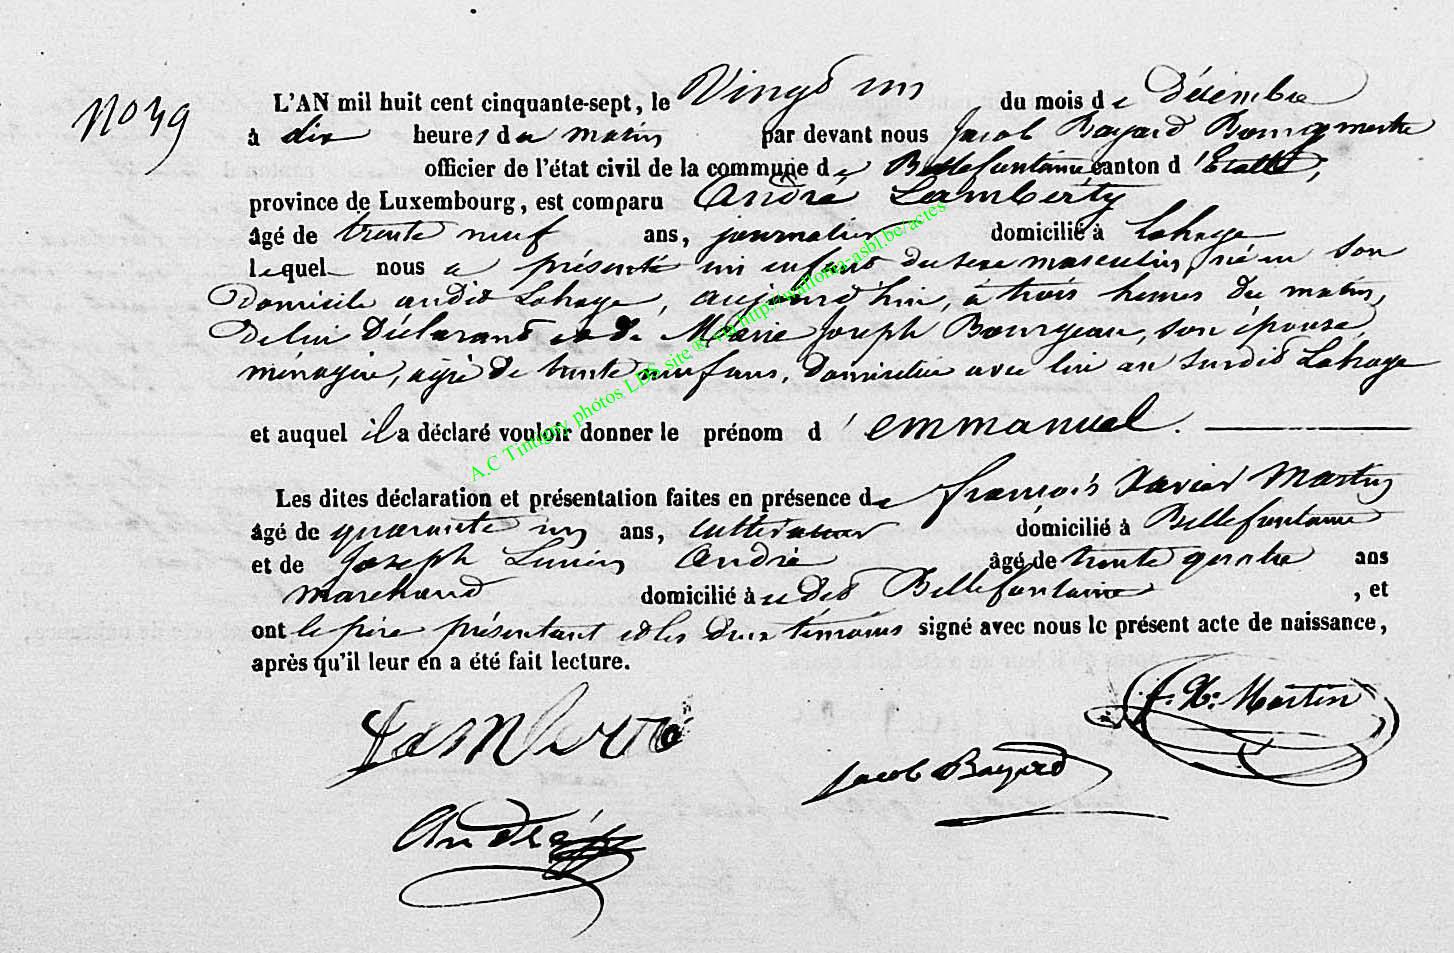 No 39
L'AN mil huit cent cinquante-sept, le Vingt un du mois de Décembre
à dix heures du matin par devant nous Jacob Bayard Bourgmestre
officier de l'état civil de la commune de Bellefontaine canton d'Etalle,
province de Luxembourg, est comparu André Lamberty
âgé de trente neuf ans, journalier domicilié à Lahage
lequel nous a présenté un enfant du sexe masculin, né en son
Domicile audit Lahage, aujourd'hui, à trois heures du matin,
De lui Déclarant et de Marie Joseph Bourgeau, son épouse,
ménagère, agée de trente neuf ans, domiciliée avec lui au susdit Lahage
et auquel il a déclaré vouloir donner le prénom d'emmanuel.
Les dites déclaration et présentation faites en présence de françois Xavier Martin
âgé de quarante un ans, cultivateur domicilié à Bellefontaine
et de Joseph Lucien André âgé de trente quatre ans
marchand domicilié à udit Bellefontaine, et
ont le père présentant et les deux témoins signé avec nous le présent acte de naissance,
après qu'il leur en a été fait lecture.
F. X. Martin
Jacob Bayard
André
A.C Tintigny photos LDS site ® via http://wallonia-asbl.be/actes